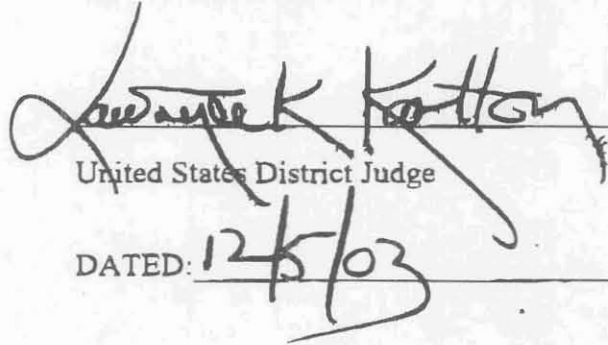 Lawrence K Karlton
United States District Judge
DATED: 12/5/03